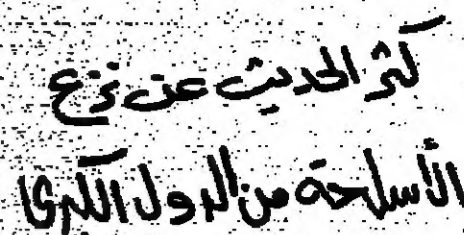 كثر الحديث عن نزع
الأسلحة من الدول الكبرى